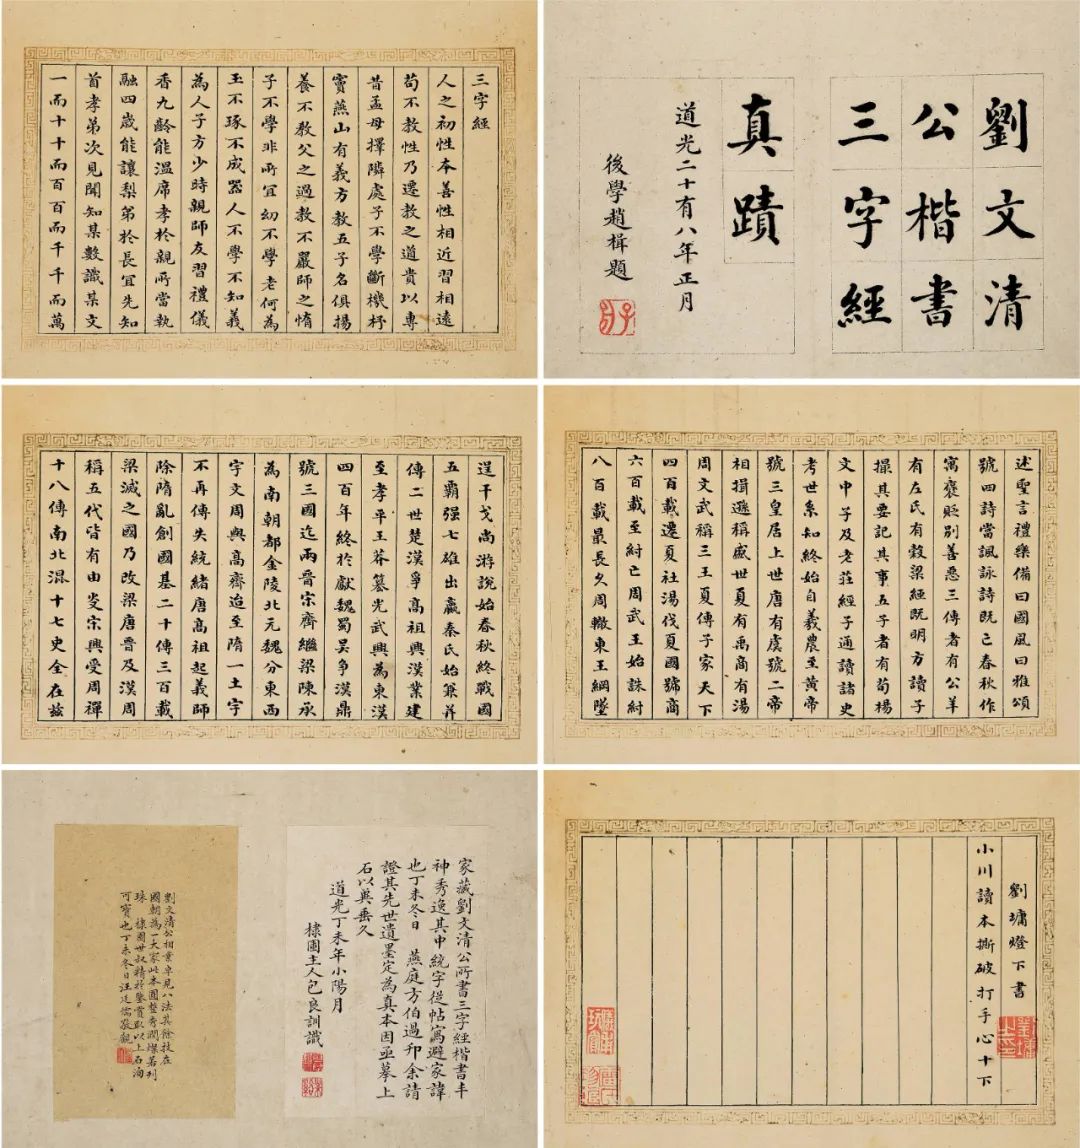 劉文清
公楷書
三字經
真蹟
道光二十有八年正月
後學趙楫題
三字經
人之初性本善性相近習相遠
苟不教性乃遷教之道貴以專
昔孟母擇隣處子不學斷機杼
竇燕山有義方教五子名俱揚
養不教父之過教不嚴師之惰
子不學非所宜幼不學老何為
玉不琢不成器人不學不知義
為人子方少時親師友習禮儀
香九齡能溫席孝於親所當執
融四歲能讓梨弟於長宜先知
首孝弟次見聞知某數識某文
一而十十而百百而千千而萬
述聖言禮樂備曰國風曰雅頌
號四詩當諷詠詩既亡春秋作
寓褒貶別善惡三傳者有公羊
有左氏有穀梁經既明方讀子
撮其要記其事五子者有荀楊
文中子及老莊經子通讀諸史
考世系知終始自羲農至黃帝
號三皇居上世唐有虞號二帝
相揖遜稱盛世夏有禹商有湯
周文武稱三王夏傳子家天下
四百載遷夏社湯伐夏國號商
六百載至紂亡周武王始誅紂
八百載最長久周轍東王綱墜
逞干戈尚游說始春秋終戰國
五霸强七雄出嬴秦氏始兼并
傳二世楚漢爭高祖興漢業建
至孝平王莽篡光武興為東漢
四百年終於獻魏蜀吴爭漢鼎
號三國迄兩晉宗齊繼梁陳承
為南朝都金陵北元魏分東西
宇文周與高齊迨至隋一土宇
不再傳失統緒唐高祖起義師
除隋亂創國基二十傳三百載
梁滅之國乃改梁唐晉及漢周
稱五代皆有由炎宗興受周禪
十八傳南北混十七史全在兹
劉墉燈下書
小川讀本撕破打手心十下
家藏劉文清公所書三字經楷書丰
神秀逸其中統字從帖寫避家諱
也丁未冬日 燕庭方伯過卯余請
證其先世遺墨定為真本因亟摹上
石以㒷垂久
道光丁未年小陽月
棣園主人包良訓識
劉文清公相業卓見八法其餘技在
國朝為一大家此本圓整秀潤燦若列
珠 棣園世叔精於鑒賞取以上石洵
可寶也丁未冬日汪廷儒敬觀